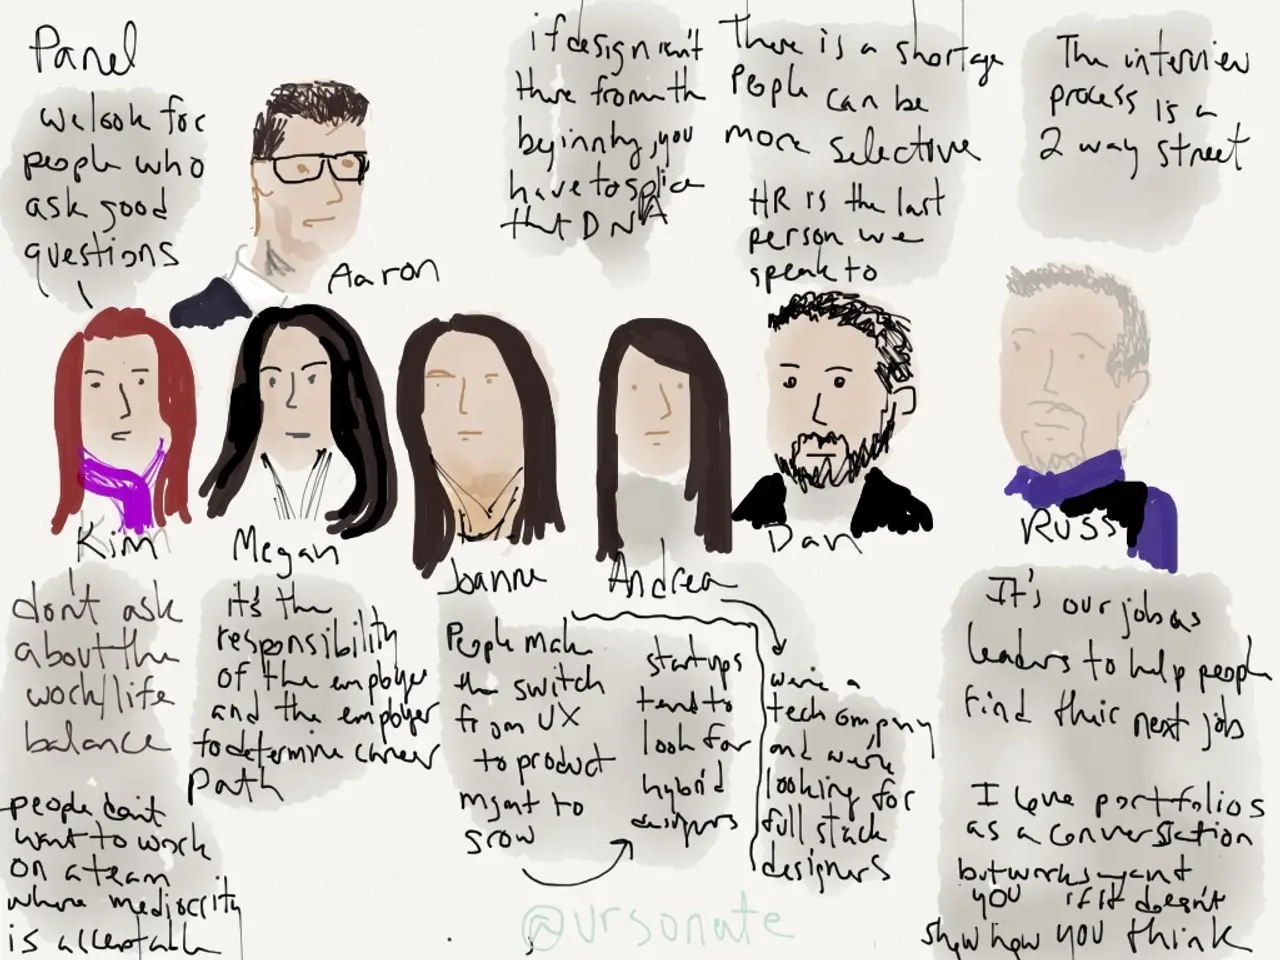 Panel
we look for
people who
ask good
questions
Aaron
if design isn't
there from the
beginning, you
have to splice
that DNA
There is a shortage
People can be
more selective
HR is the last
person we
speak to
The interview
process is a
2 way street
Kim
Megan
Joanne
Andrea
Dan
Russ
don't ask
about the
work/life
balance
people don't
want to work
on a team
where mediocrity
is acceptable
it's the
responsibility
of the employee
and the employer
to determine career
path
People make
the switch
from UX
to product
mgmt to
grow
startups
tend to
look for
hybrid
designers
we're a
tech company
and we're
looking for
full stack
designers
It's our job as
leaders to help people
find their next job
I love portfolios
as a conversation
but works against
you if it doesn't
show how you think
@ursonate